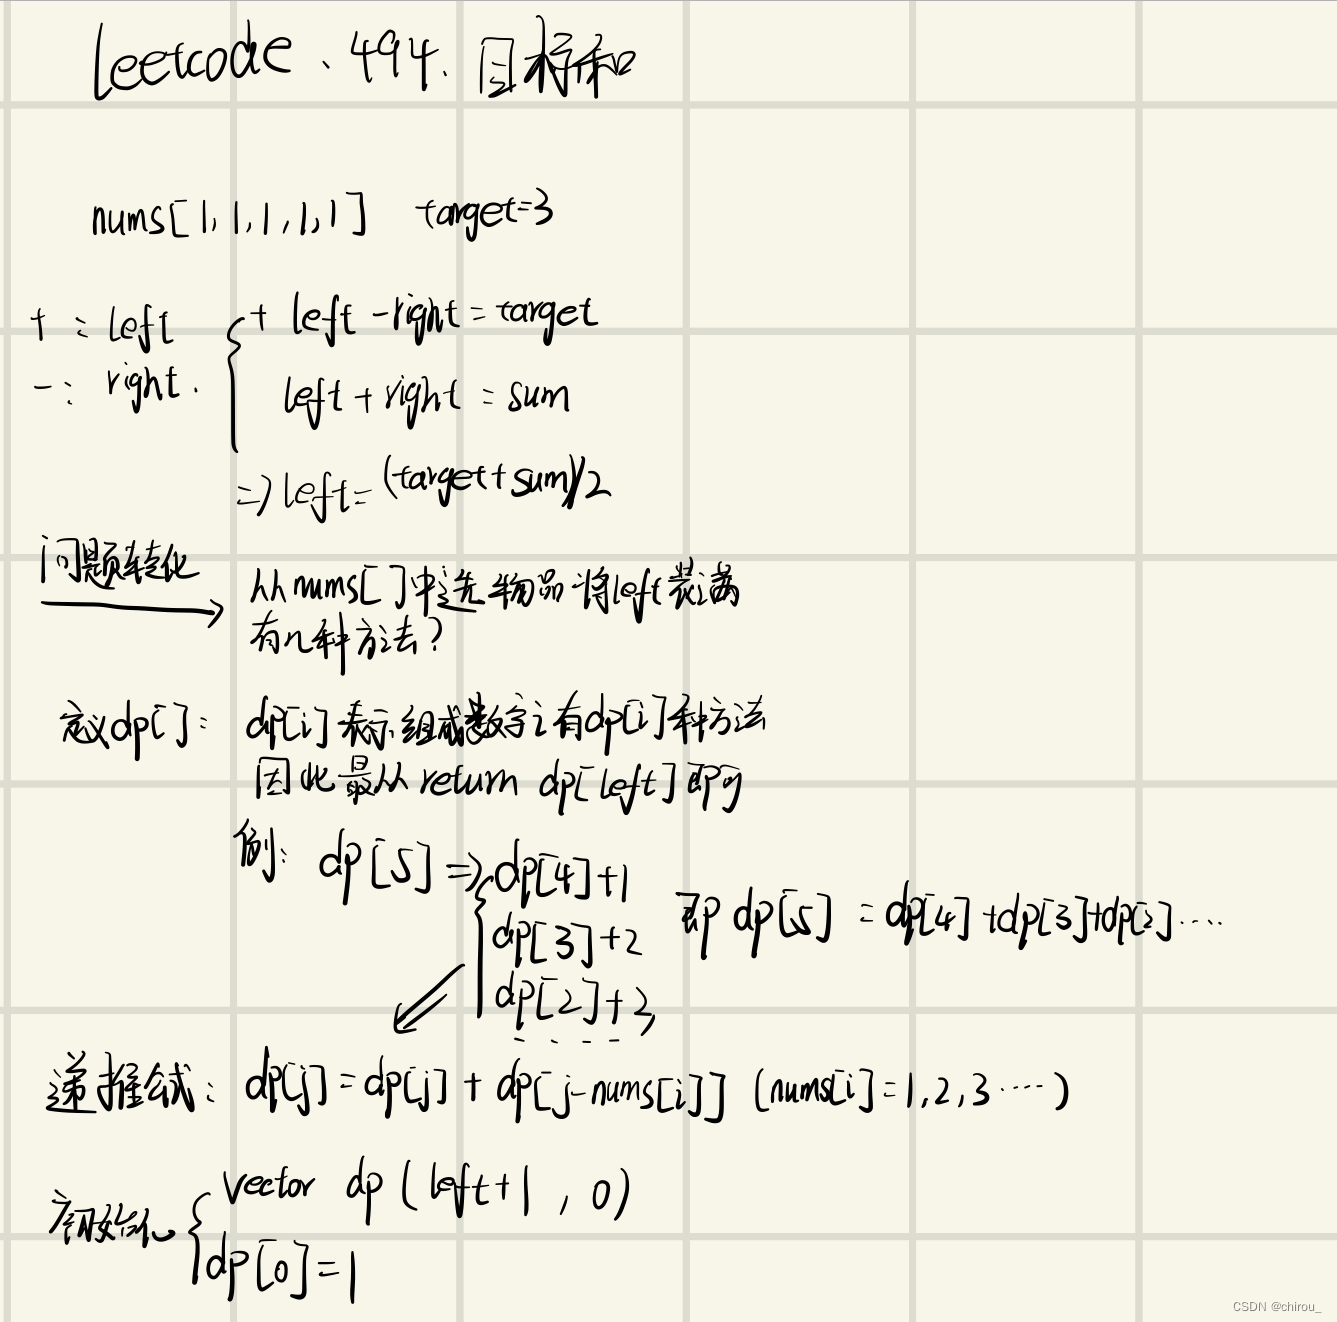 leetcode、494. 目标和
nums[1,1,1,1,1] target=3
+ : left
- : right.
+ left - right = target
left + right = sum
=> left = (target + sum)/2
问题转化
从nums[]中选物品将left装满
有几种方法?
定义dp[]: dp[i]表示组成数字i有dp[i]种方法
因此最从return dp[left]即可
例: dp[5] => dp[4]+1
dp[3]+2
dp[2]+2
....
即 dp[5] = dp[4]+dp[3]+dp[2]....
递推公式: dp[j] = dp[j] + dp[j-nums[i]] (nums[i]=1,2,3....)
初始化 vector dp (left+1 , 0)
dp[0]=1
CSDN @chirou_